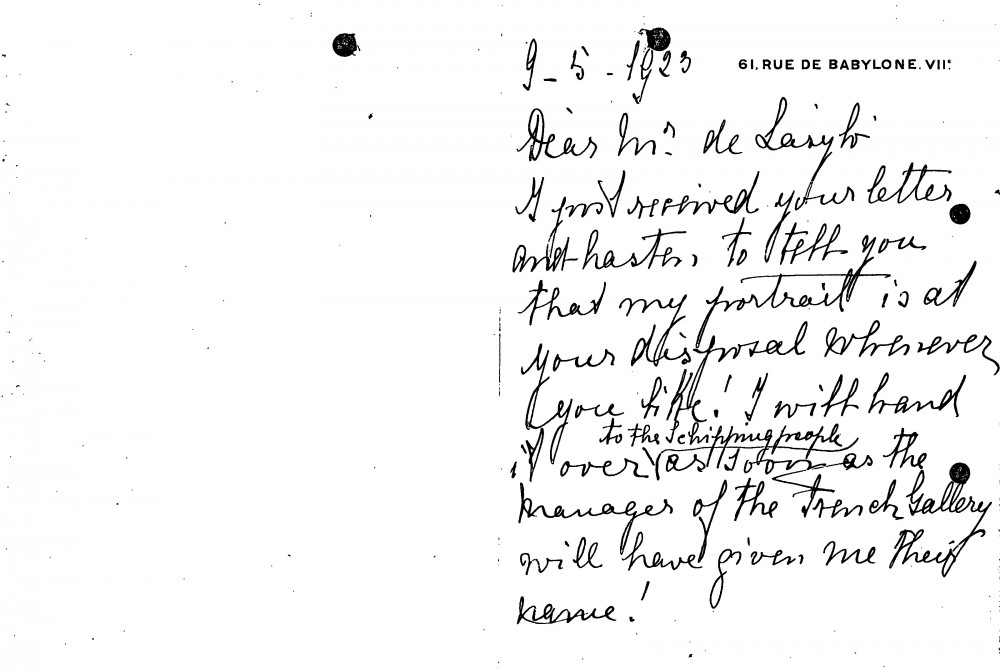 9-5-1923
61, RUE DE BABYLONE. VIIE.
Dear Mr. de László
I just received your letter
and hasten to tell you
that my portrait is at
your disposal whenever
you like! I will hand
to the Schipping people
it over as soon as the
manager of the French Gallery
will have given me their
name!